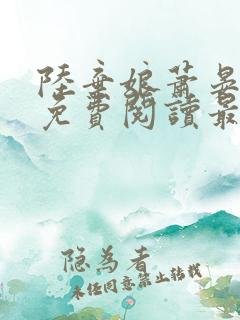 陸棄娘蕭晏
免費閱讀最
隐为者
未经同意禁止转载